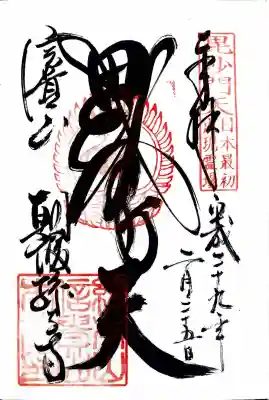 奉拝
毘沙門天日本最初
出現霊場
平成二十九年
二月二五日
毘沙門天
信貴山
朝護孫子寺